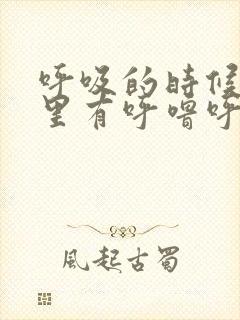 呼吸的時候
里有呼嚕呼
風起古蜀